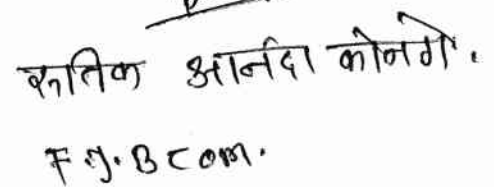 कार्तिक आनंदा कोनगे.
F.Y. B com.